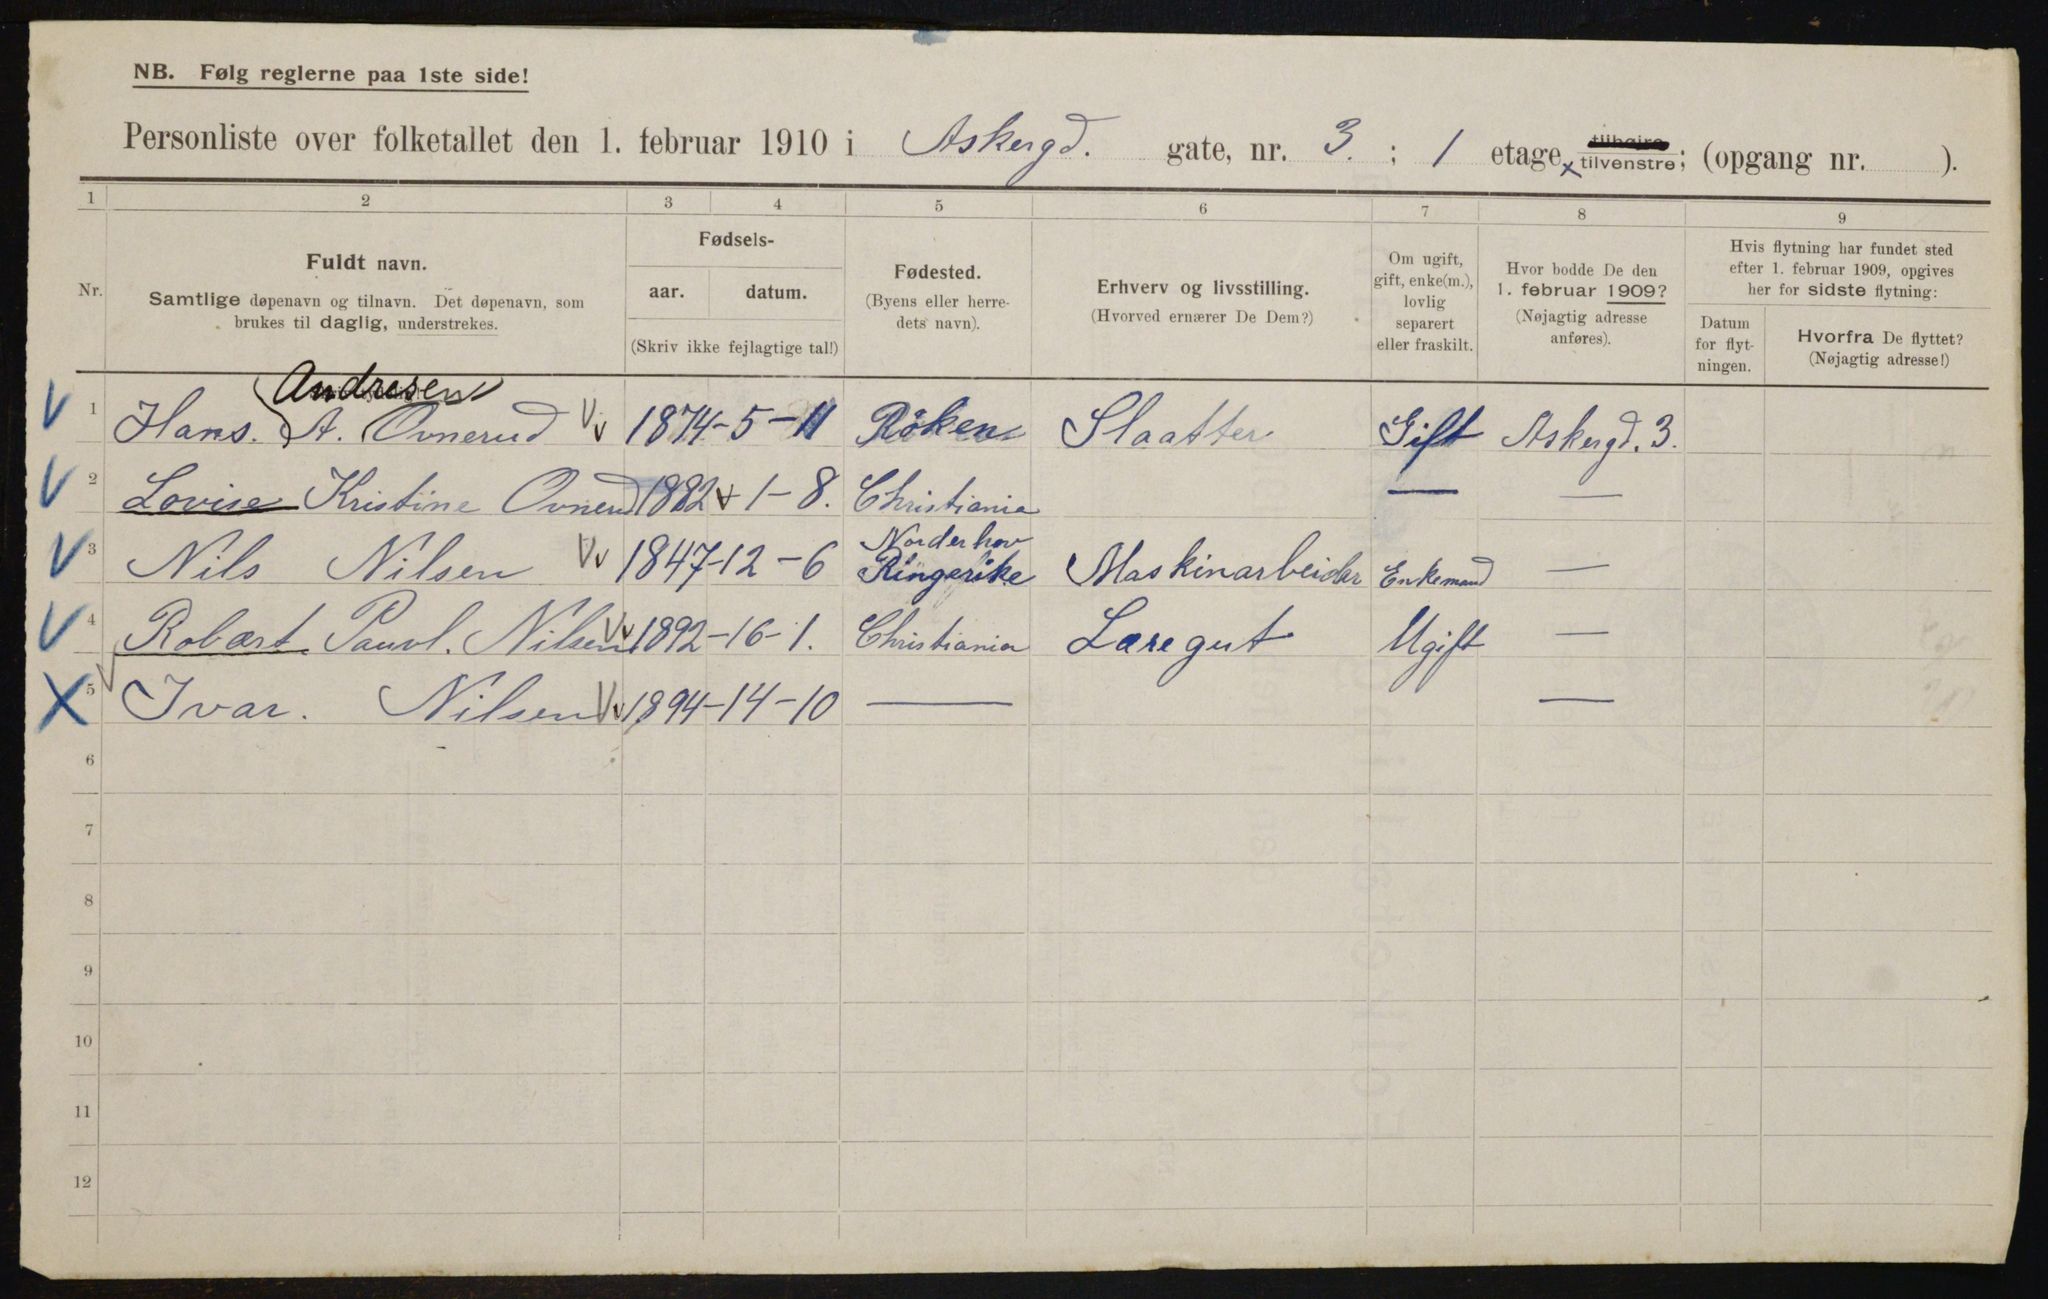 NB. Følg reglerne paa 1ste side!
Personliste over folketallet den 1. februar 1910 i Askergd. gate, nr. 3. ; 1 etage x tilhøjre tilvenstre; (opgang nr. ).
1 2 3 4 5 6 7 8 9
Nr. Fuldt navn. Samtlige døpenavn og tilnavn. Det døpenavn, som brukes til daglig, understrekes.
Fødsels- aar. datum. (Skriv ikke fejlagtige tal!)
Fødested. (Byens eller herredets navn).
Erhverv og livsstilling. (Hvorved ernærer De Dem?)
Om ugift, gift, enke(m.), lovlig separert eller fraskilt.
Hvor bodde De den 1. februar 1909? (Nøjagtig adresse anføres).
Hvis flytning har fundet sted efter 1. februar 1909, opgives her for sidste flytning:
Datum for flytningen. Hvorfra De flyttet? (Nøjagtig adresse!)
Andresen
1 Hans. A. Ovnerud 1874-5-11 Röken Slaatter Gift Askergd. 3.
2 Lovise Kristine Ovnerud 1882-1-8. Christiania — —
3 Nils Nilsen 1847-12-6 Norderhov Ringerike Maskinarbeider Enkemand —
4 Robært Pauvl. Nilsen 1892-16-1. Christiania Læregut Ugift —
5 Ivar. Nilsen 1894-14-10 — —
6
7
8
9
10
11
12